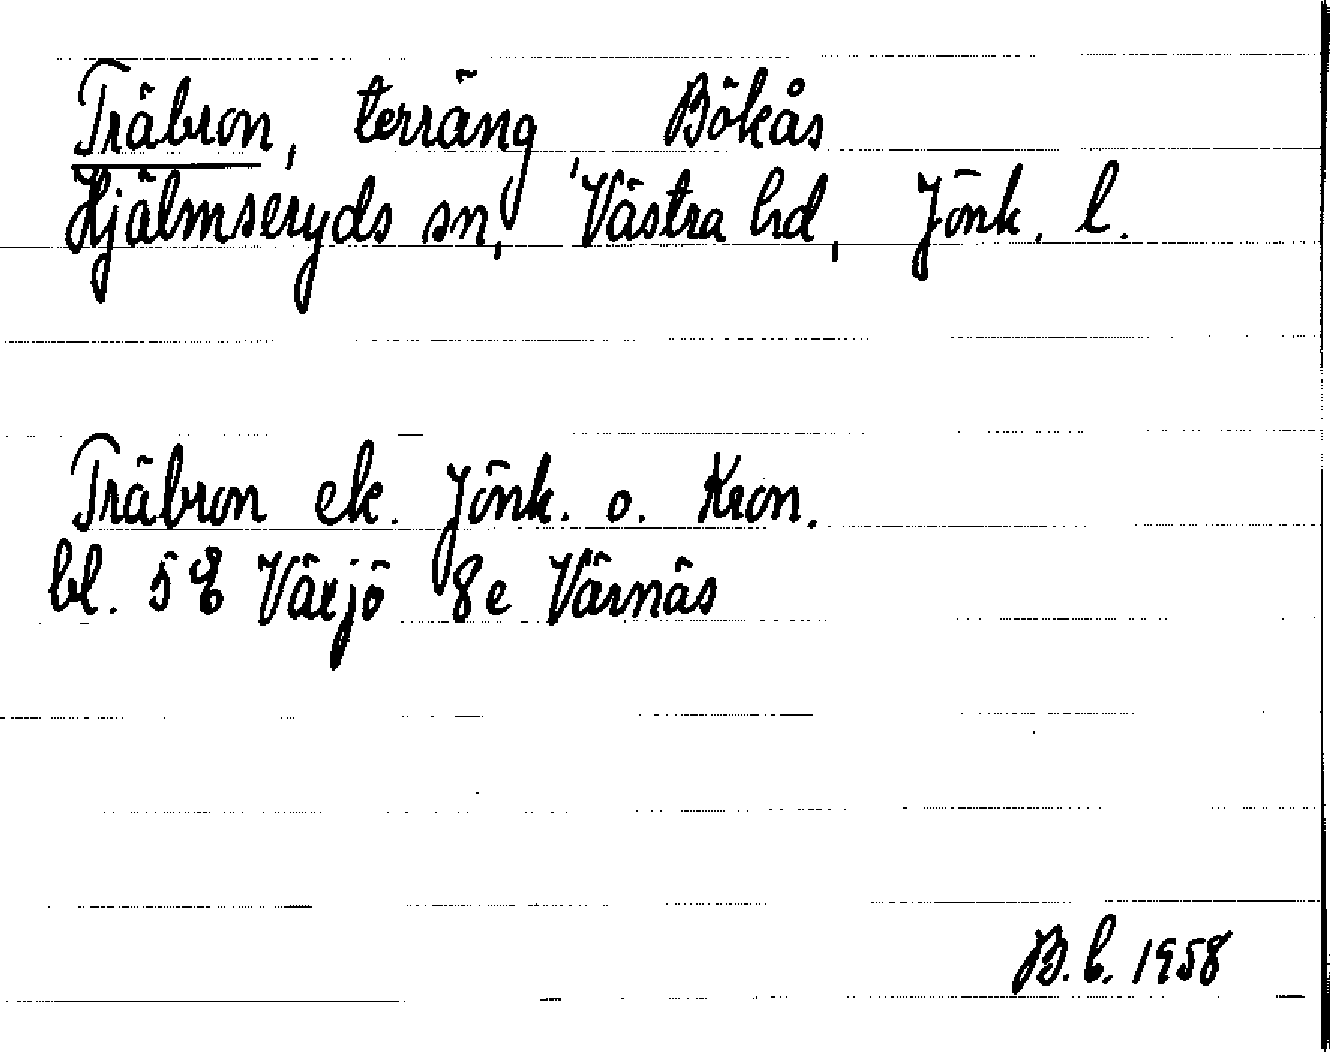 Träbron, terräng Bökås
Hjälmseryds sn, Västra hd, Jönk. l.
Träbron ek. Jönk. o. Kron.
bl. 5 E Växjö 8e Värnäs
B. b. 1958